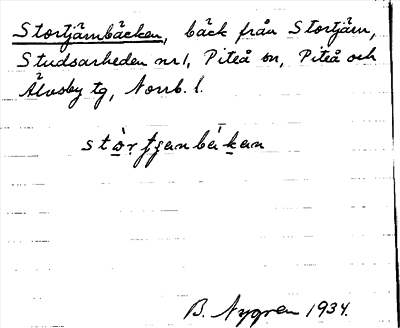 Stortjärnbäcken, bäck från Stortjärn,
Studsarheden nr 1, Piteå sn, Piteå och
Älvsby tg, Norrb. l.
B. Nygren 1934.